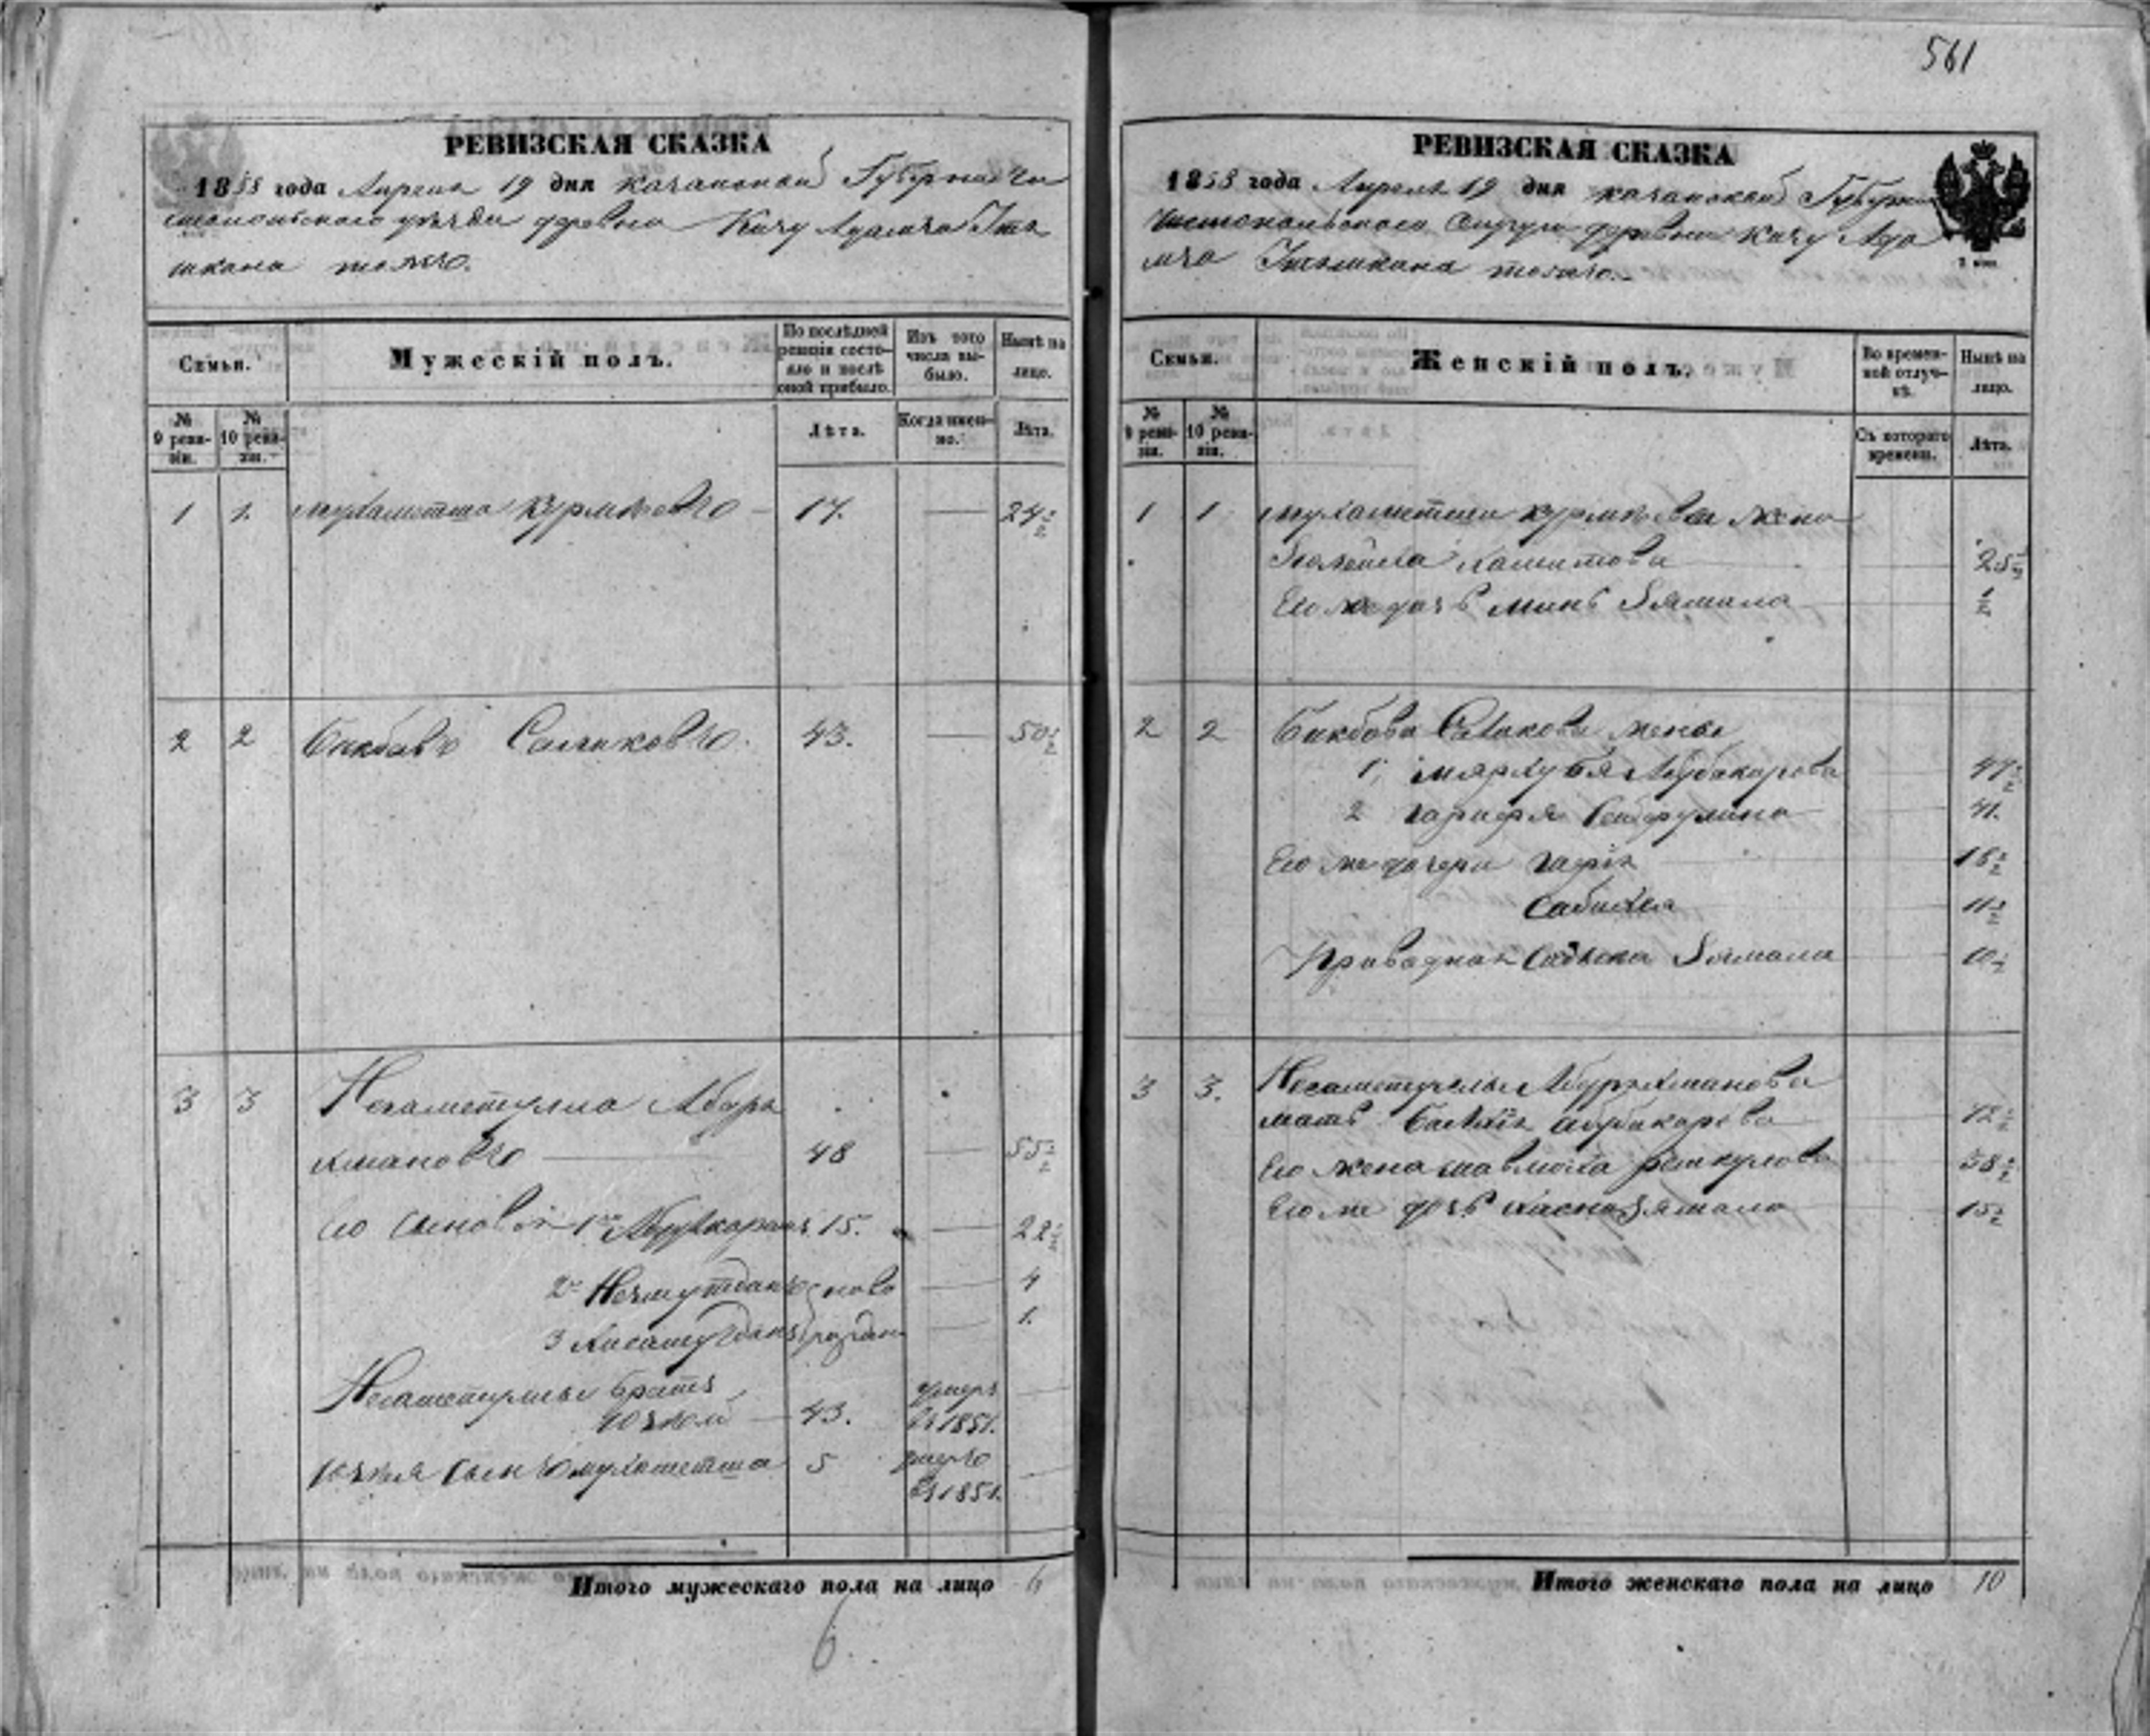 561
РЕВИЗСКАЯ СКАЗКА
1858 года Апреля 19 дня Казанской Губернии Чи
стопольского уезда деревни Кичу Адамча Иш
шкана тожъ.
Семьи.
Мужескій полъ.
По послѣдней ревизіи состояло и послѣ оной прибыло.
Изъ того числа выбыло.
Нынѣ на лицо.
№ 9 ревизіи.
№ 10 ревизіи.
Лѣта.
Когда именно.
Лѣта.
1 1. Мухаметша Курмѣевъ 17. — 24 1/2
2 2 Бикбавъ Салиховъ. 43. — 50 1/2
3 3 Негаметулла Абдра
хмановъ — 48 — 55 1/2
Его сыновья 1й 15. — 22 1/2
2й ново — 4
3 рожден — 1.
Негаметуллы братъ умеръ
43. въ 1851. —
сынъ Мухаметша 5 умеръ
въ 1851. —
Итого мужескаго пола на лицо 6
6
РЕВИЗСКАЯ СКАЗКА
1858 года Апреля 19 дня Казанской Губерни
Чистопольского Округа деревни Кичу Ада
мча Ишашкана тожъ.
Семьи.
Женскій полъ.
Во временной отлучкѣ.
Нынѣ на лицо.
№ 9 ревизіи.
№ 10 ревизіи.
Съ котораго времени.
Лѣта.
1 1 Мухаметши Курмѣева жена
Хамитова 25 1/2
Его же дочь Минь Зямала 1/2
2 2 Бикбова Салихова жены
1, Мархубя Абубакарова 47 1/2
2 Гарифя Сейфулина 41.
Его же дочери 18 1/2
Сабихея 11 1/2
Зямала 10 1/2
3 3. Негаметуллы Абдрахманова
мать Абубакарова 72 1/2
Его жена 58 1/2
Его же дочь Хасна Зямала 15 1/2
Итого женскаго пола на лицо 10